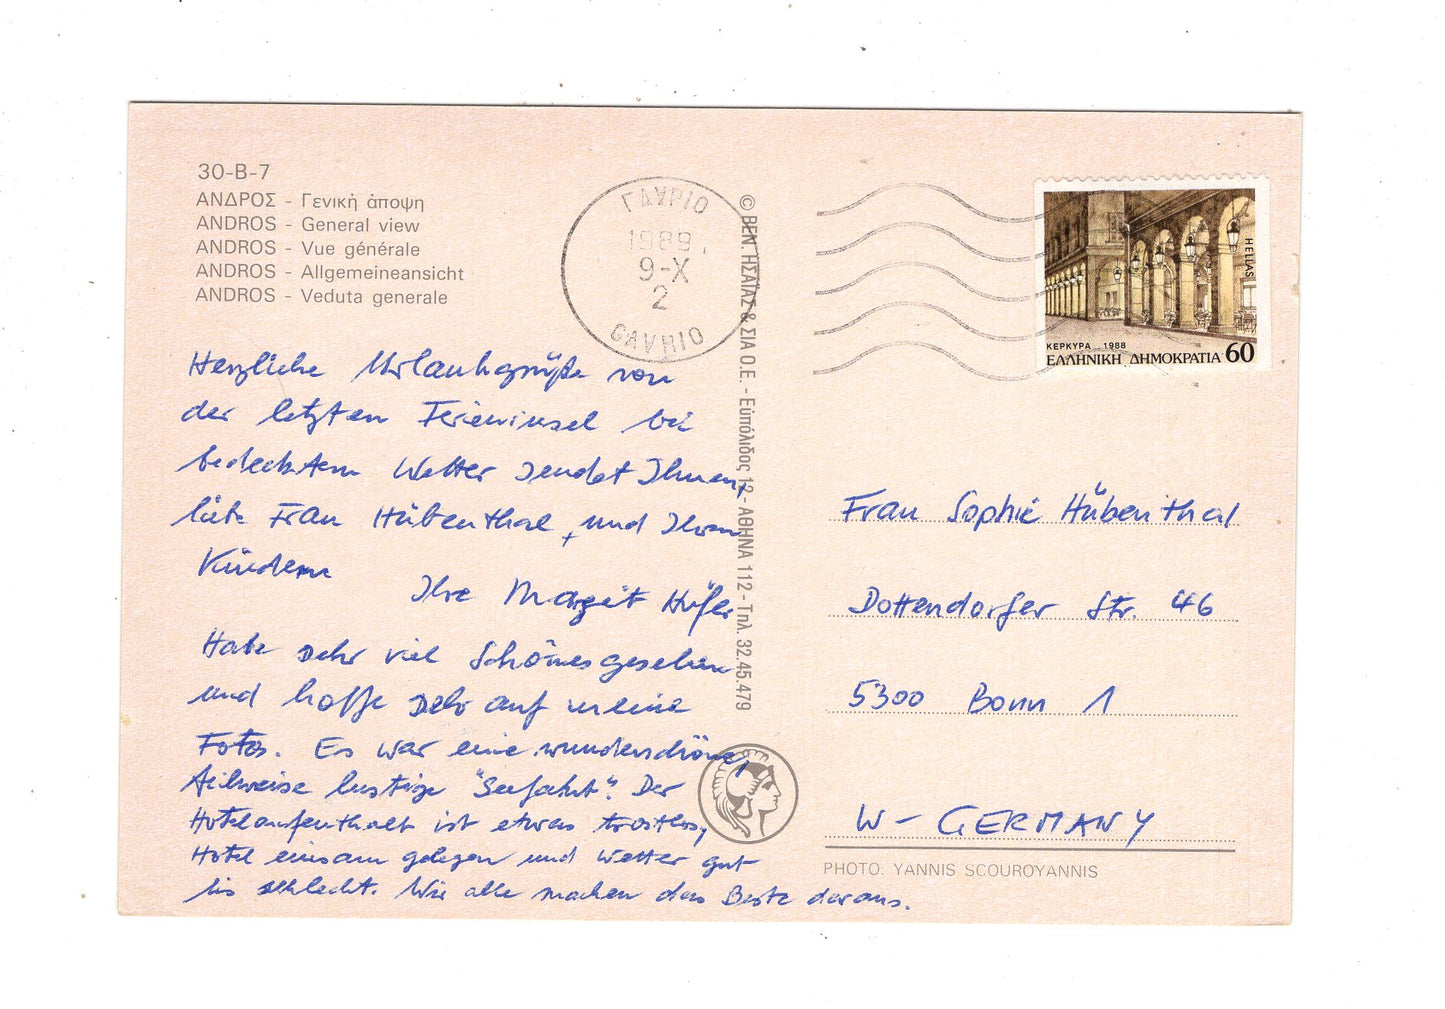 30-B-7
ΑΝΔΡΟΣ - Γενική άποψη
ANDROS - General view
ANDROS - Vue générale
ANDROS - Allgemeineansicht
ANDROS - Veduta generale
ΓΑΥΡΙΟ
1989
9-X
2
GAVRIO
© ΒΕΝ. ΗΣΑΪΑΣ & ΣΙΑ Ο.Ε. - Εὐπόλιδος 12 - ΑΘΗΝΑ 112 - Τηλ. 32.45.479
HELLAS
ΚΕΡΚΥΡΑ 1988
ΕΛΛΗΝΙΚΗ ΔΗΜΟΚΡΑΤΙΑ 60
Herzliche Urlaubsgrüße von
der letzten Ferieninsel bei
bedecktem Wetter sendet Ihnen,
liebe Frau Hübenthal, und Ihren
Kindern
Ihre Margit Hüfer
Habe sehr viel Schönes gesehen
und hoffe sehr auf meine
Fotos. Es war eine wunderschöne,
teilweise lustige "Seefahrt". Der
Hotelaufenthalt ist etwas trostlos,
Hotel einsam gelegen und Wetter gut
bis schlecht. Wir alle machen das Beste daraus.
Frau Sophie Hübenthal
Dottendorfer Str. 46
5300 Bonn 1
W - GERMANY
PHOTO: YANNIS SCOUROYANNIS